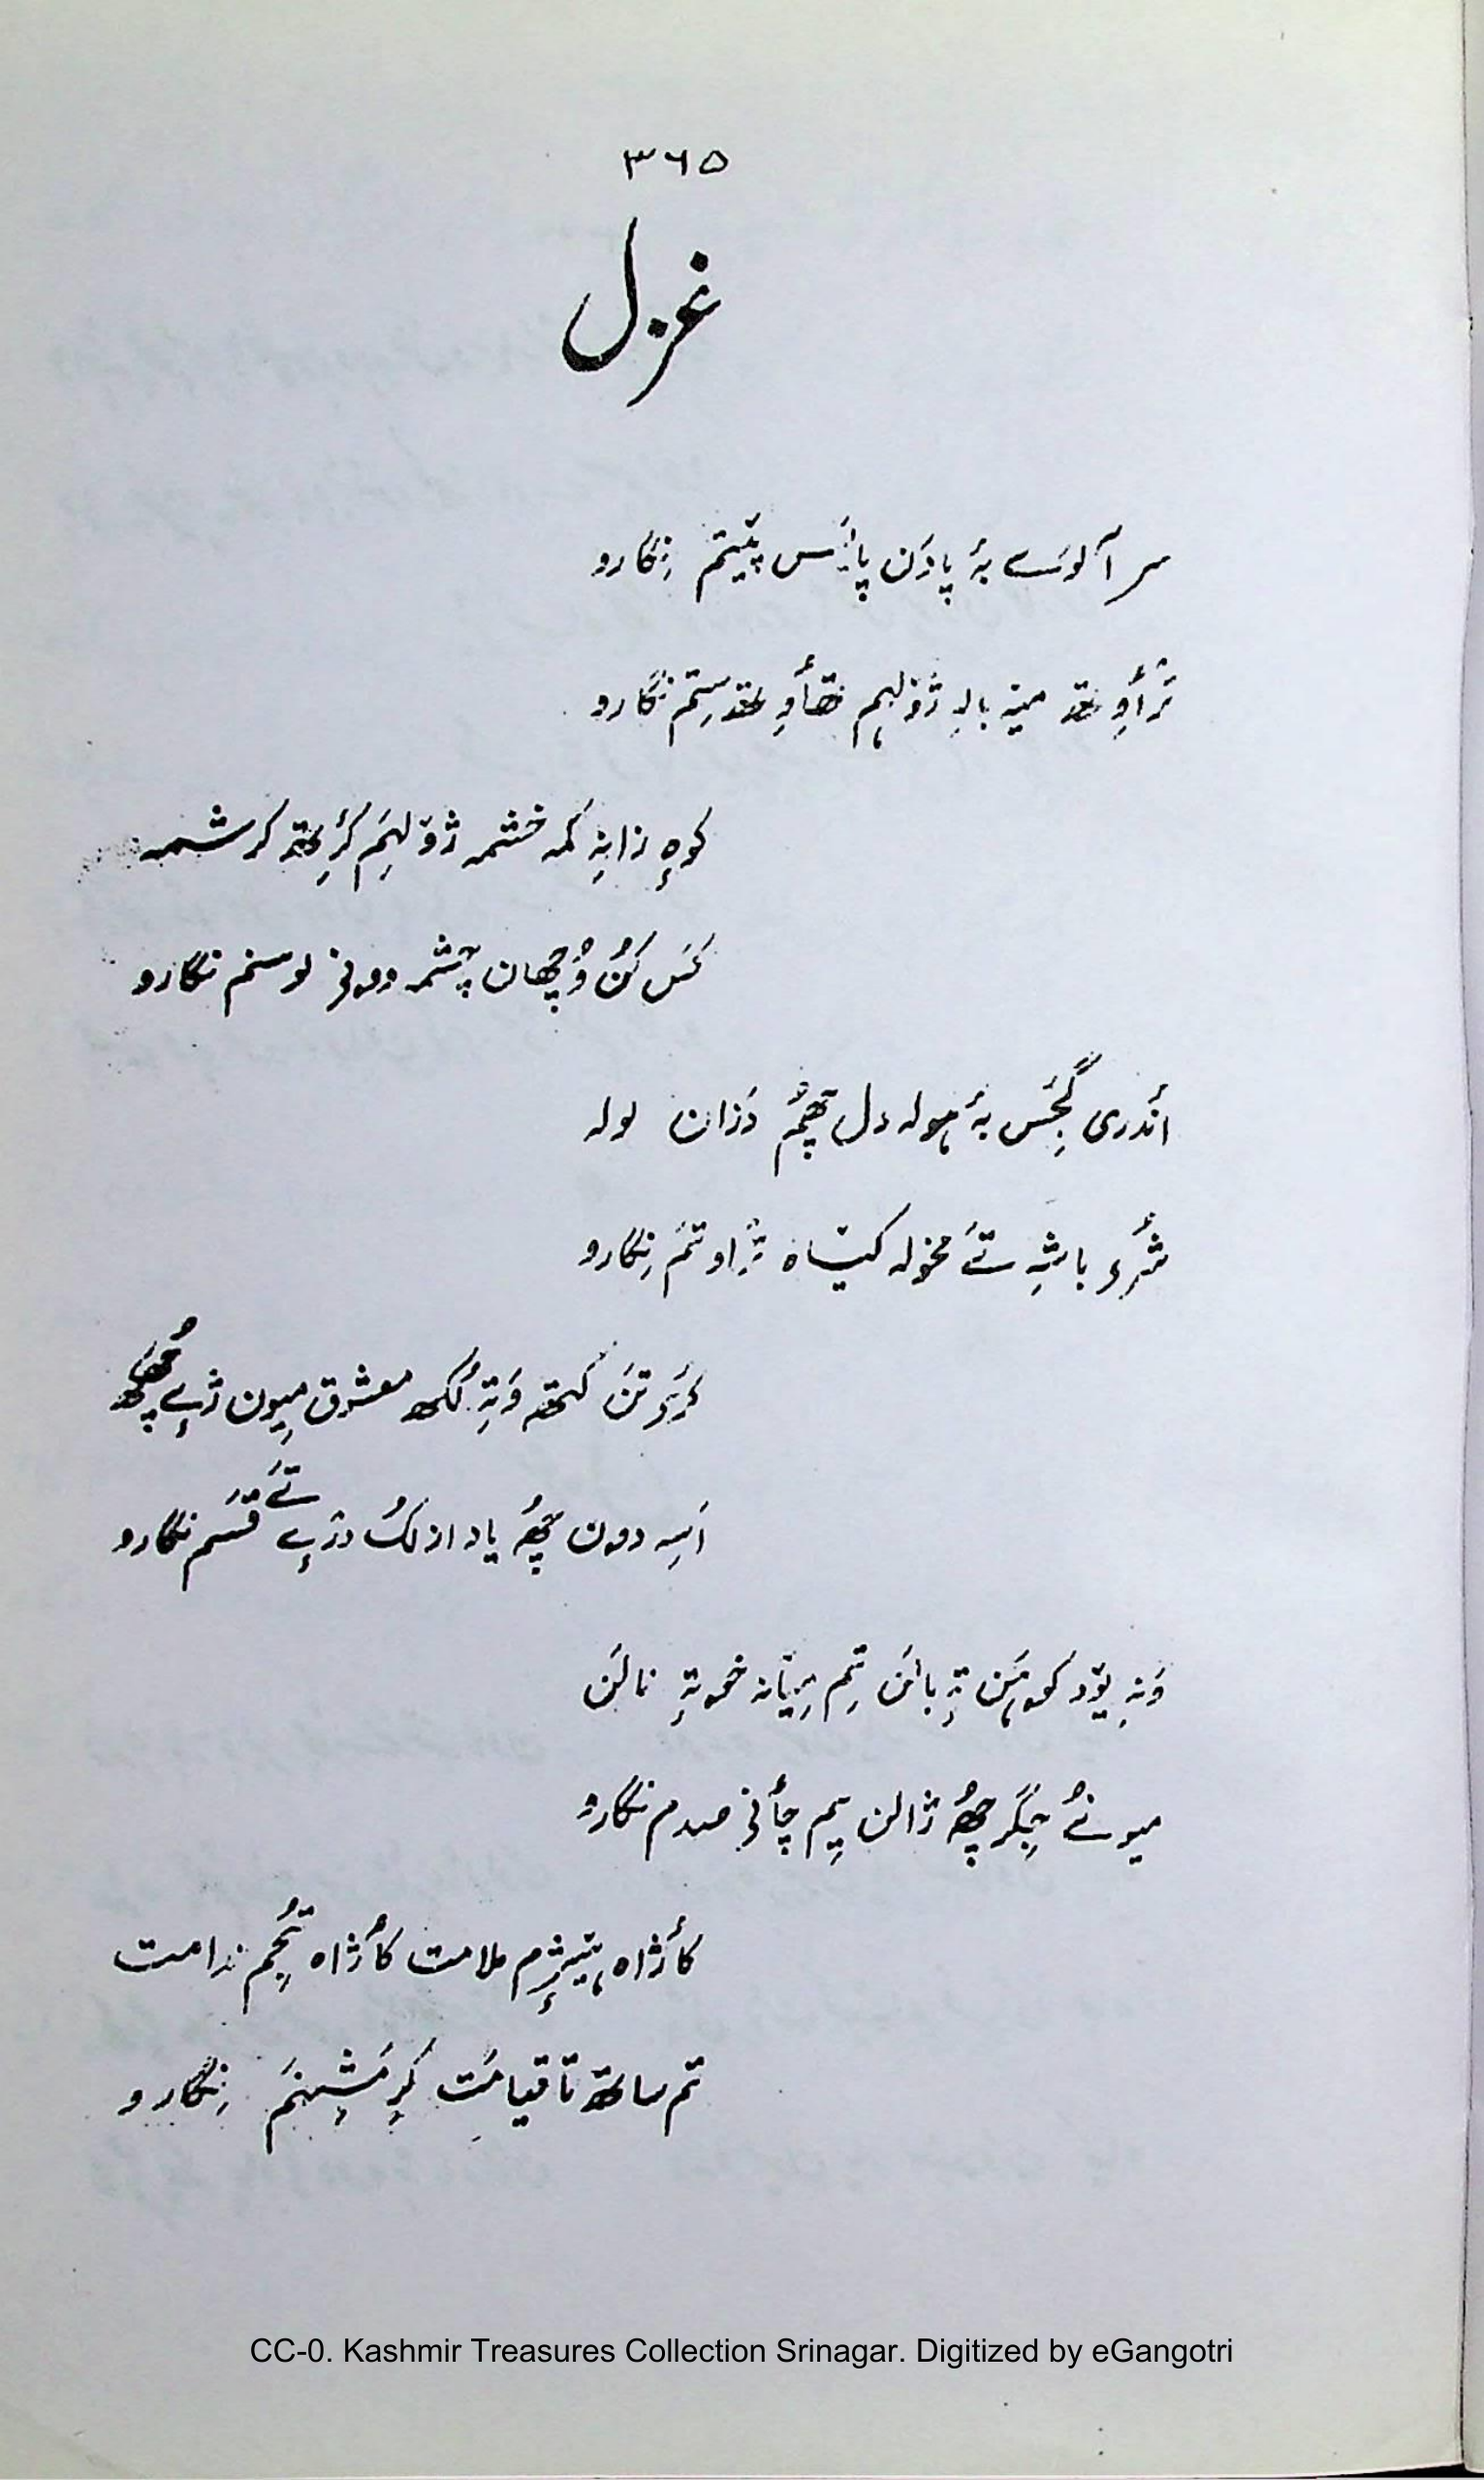 ٣٦٥
غزل
سر آلوسے بہٕ پادَن پأرۍس پیٚتم نِگارو
ترٛأوِتھ میٚہ بالہِ ژوٚلہم تھأوِتھ ستِم نگارو
کوہٕ زانہِ کمہ خشمہ ژوٚلہم کٔرِتھ کرشمہ
کَس کُن وُچھان چشمہ دونی لوسنم نگارو
أندری گجَس بہٕ ہولہ دل چھُم دَزان لولہ
شُرۍ باشہِ تے مخولہ کیٚاہ ترٛاوتَم نِگارو
کٔرۍ تَن کتھ وَتہِ لُکھ معشوق میون ژٕے چھُکھ
أسہِ دون چھُ یاد ازلُک درٕے تَے قسَم نگارو
وَنہِ یوٚد کوہَن تہٕ بالَن تِم مِیٚانہ خوتہٕ نالَن
میونے جِگر چھُ ژالن یِم چأنی صدم نگارو
کأژاہ ہیٚژٕم ملامت کأژاہ تُجِم ندامت
تم ساتھ تا قیامَت کَرِ مَشِنَم نِگارو
CC-0. Kashmir Treasures Collection Srinagar. Digitized by eGangotri